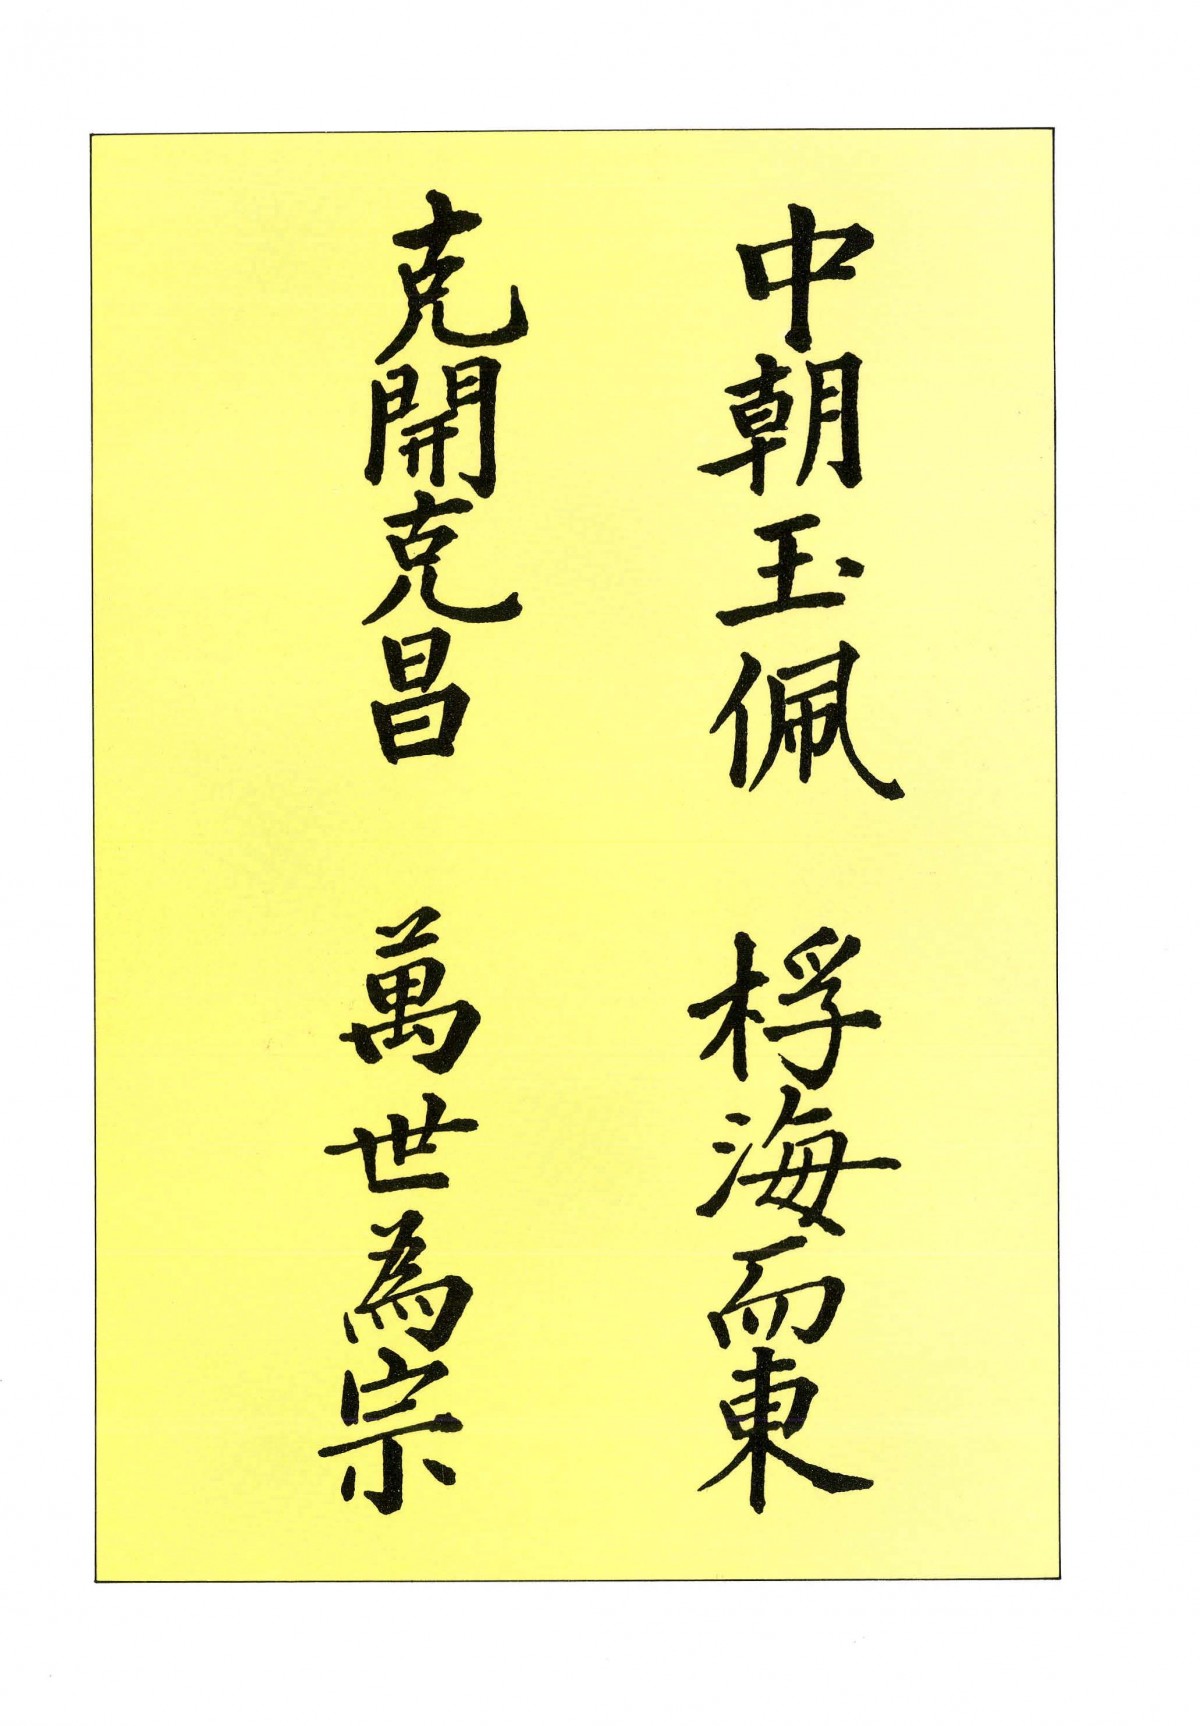 中朝玉佩 桴海而東
克開克昌 萬世為宗